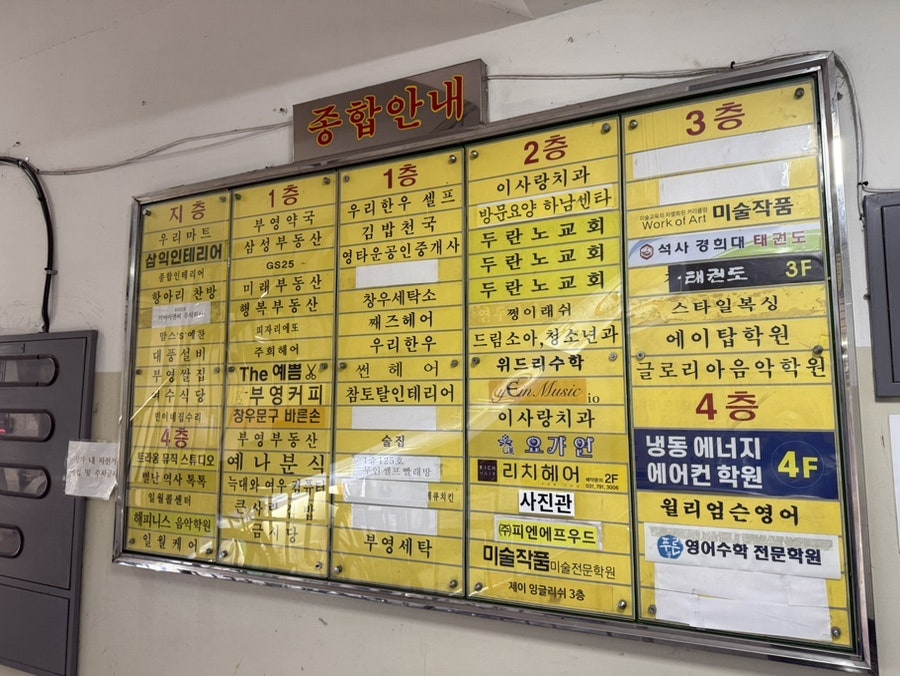 종합안내
지 층
우리마트
삼익인테리어
종합인테리어
항아리 찬방
맘스'S'예찬
대풍설비
부영쌀집
수식당
4층
뮤직 스튜디오
별난 역사 톡톡
일월롬센타
해피니스 음악학원
일월케어
1층
부영약국
삼성부동산
GS25
미래부동산
행복부동산
피자리에또
주희헤어
The 예쁨
부영커피
창우문구 바른손
부영부동산
예나분식
늑대와 여우
큰
금시당
1층
우리한우 셀프
김밥천국
영타운공인중개사
창우세탁소
째즈헤어
우리한우
썬헤어
참토탈인테리어
술집
1층125호
무인셀프빨래방
부영세탁
2층
이사랑치과
방문요양 하남센타
두란노교회
두란노교회
두란노교회
쩡이래쉬
드림소아,청소년과
위드리수학
gEmMusic
io
이사랑치과
요가안
RICH HAIR 리치헤어 예약문의 2F
031. 791. 3006
사진관
㈜피엔에프우드
미술작품미술전문학원
제이 잉글리쉬 3층
3층
미술교육의 차별화된 커리큘럼
Work of Art 미술작품
석사 경희대 태권도
태권도 3F
스타일복싱
에이탑학원
글로리아음악학원
4층
냉동 에너지
에어컨 학원 4F
윌리엄슨영어
푸른 영어수학 전문학원